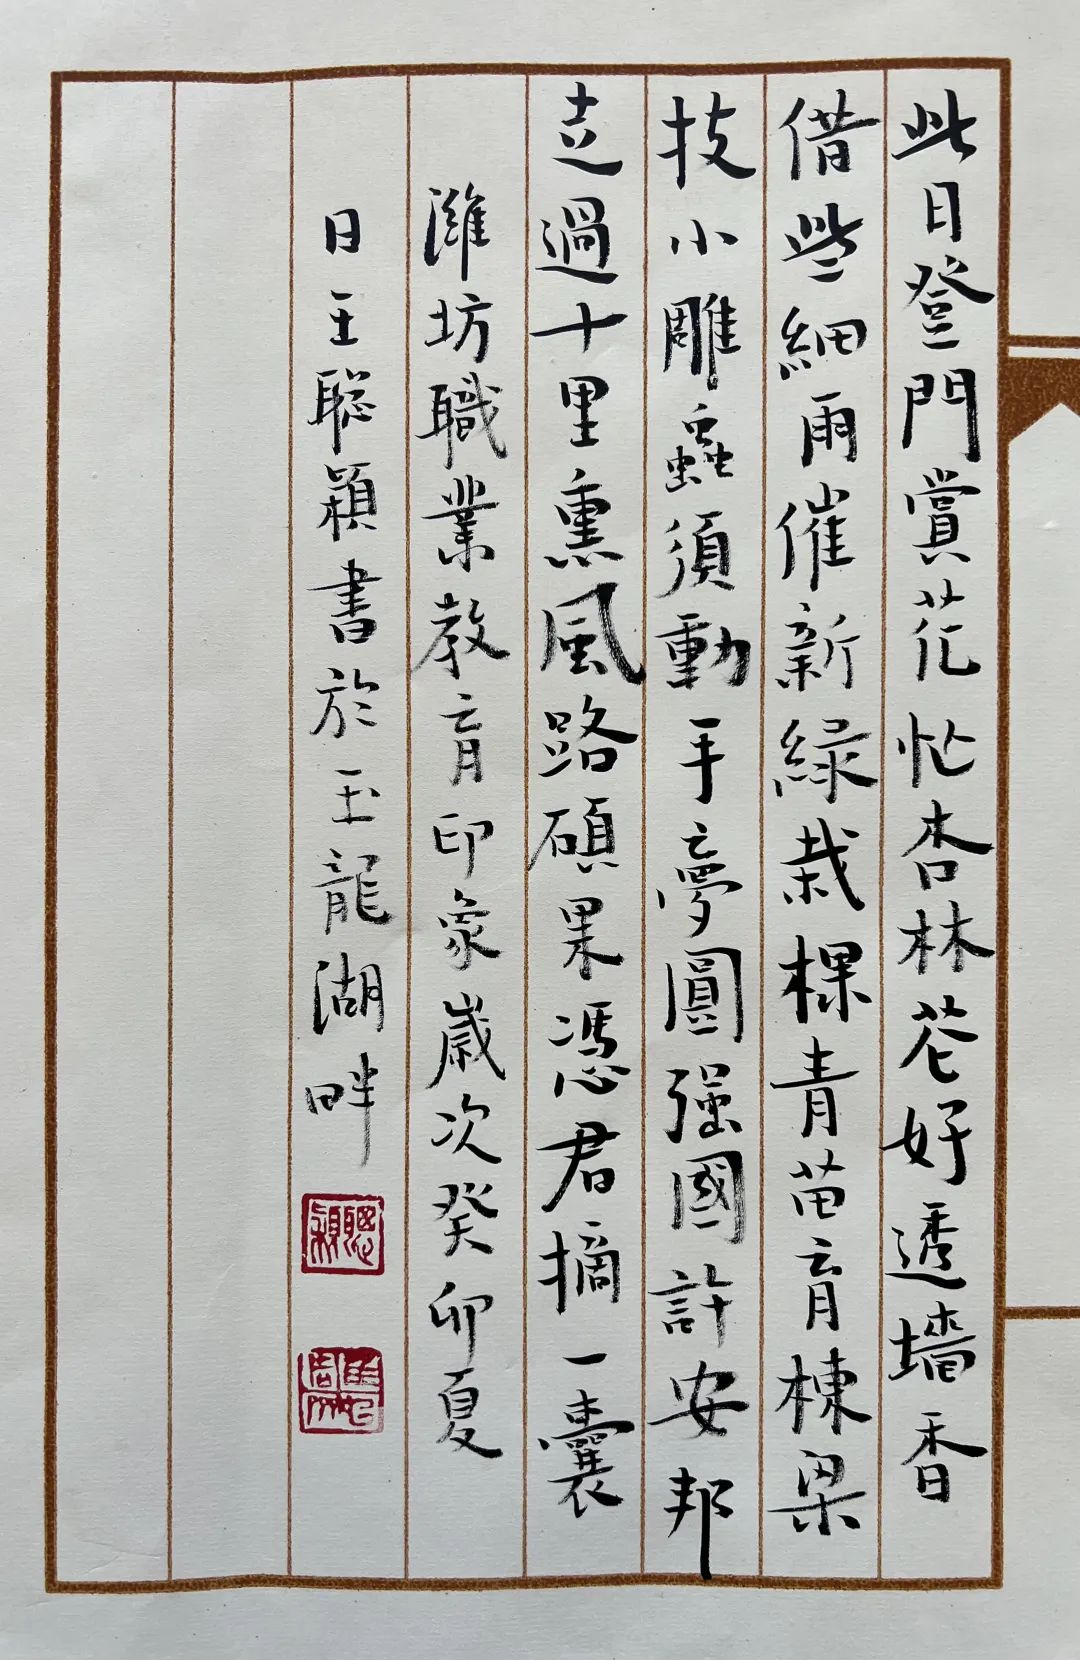 此日登門賞花忙杏林花好透墻香
借些細雨催新綠栽棵青苗育棟梁
技小雕蟲須動手夢圓强國計安邦
走過十里熏風路碩果憑君摘一囊
濰坊職業教育印象歲次癸卯夏
日王聡穎書於玉龍湖畔
聰穎